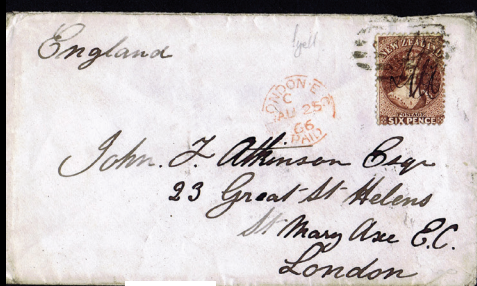 England
NEW ZEALAND
POSTAGE
SIX PENCE
LONDON E.C
C
AU 25
66
PAID
John. F Atkinson Esqr
23 Great St Helens
St Mary Axe E.C.
London